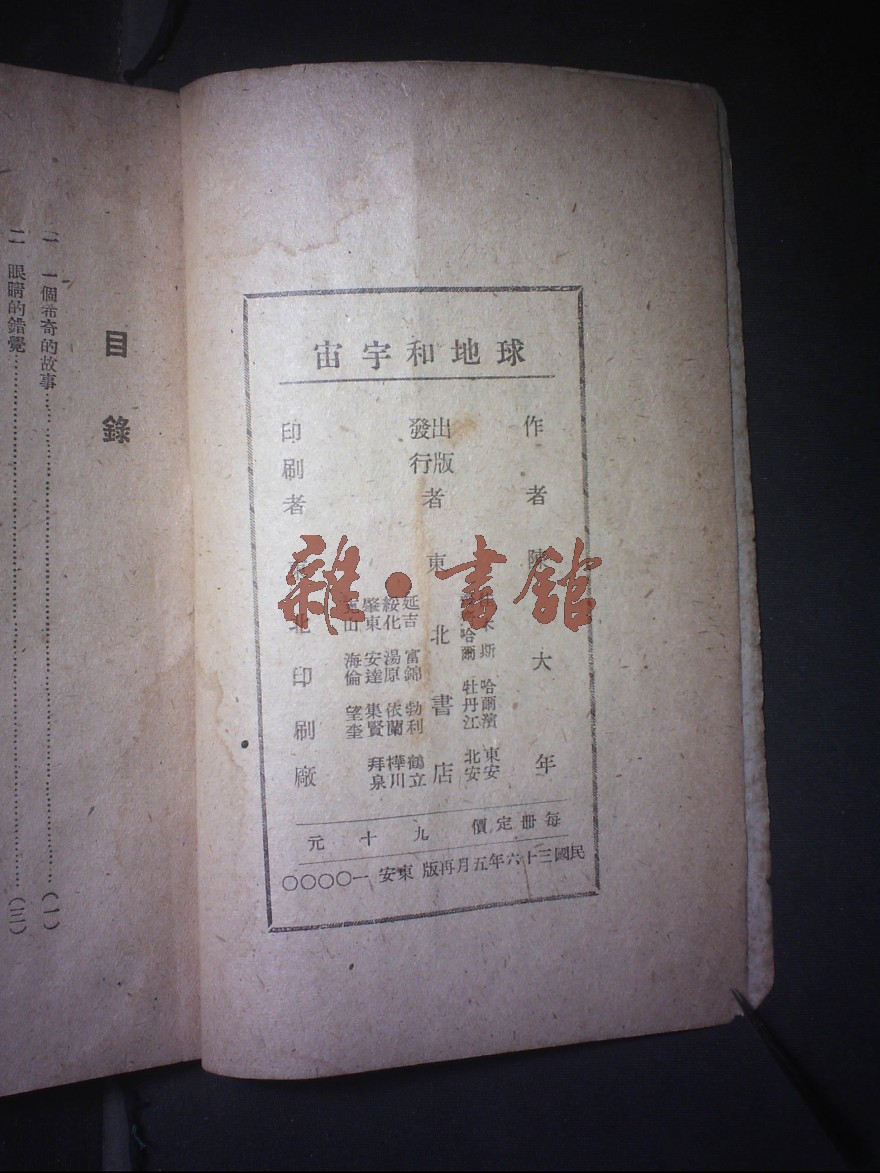 宙宇和地球
作者 陳大年
木斯 哈爾濱 東安
哈爾 牡丹江 北安
出版
發行者 東北書店
延吉 富錦 勃利 鶴立
綏化 湯原 依蘭 樺川
肇東 安達 集賢 拜泉
山 海倫 望奎
印刷者 北印刷廠
每冊定價 九十元
民國三十六年五月再版 東安 一〇〇〇〇
目錄
一 一個希奇的故事……(一)
二 眼睛的錯覺……(三)
雜·書館